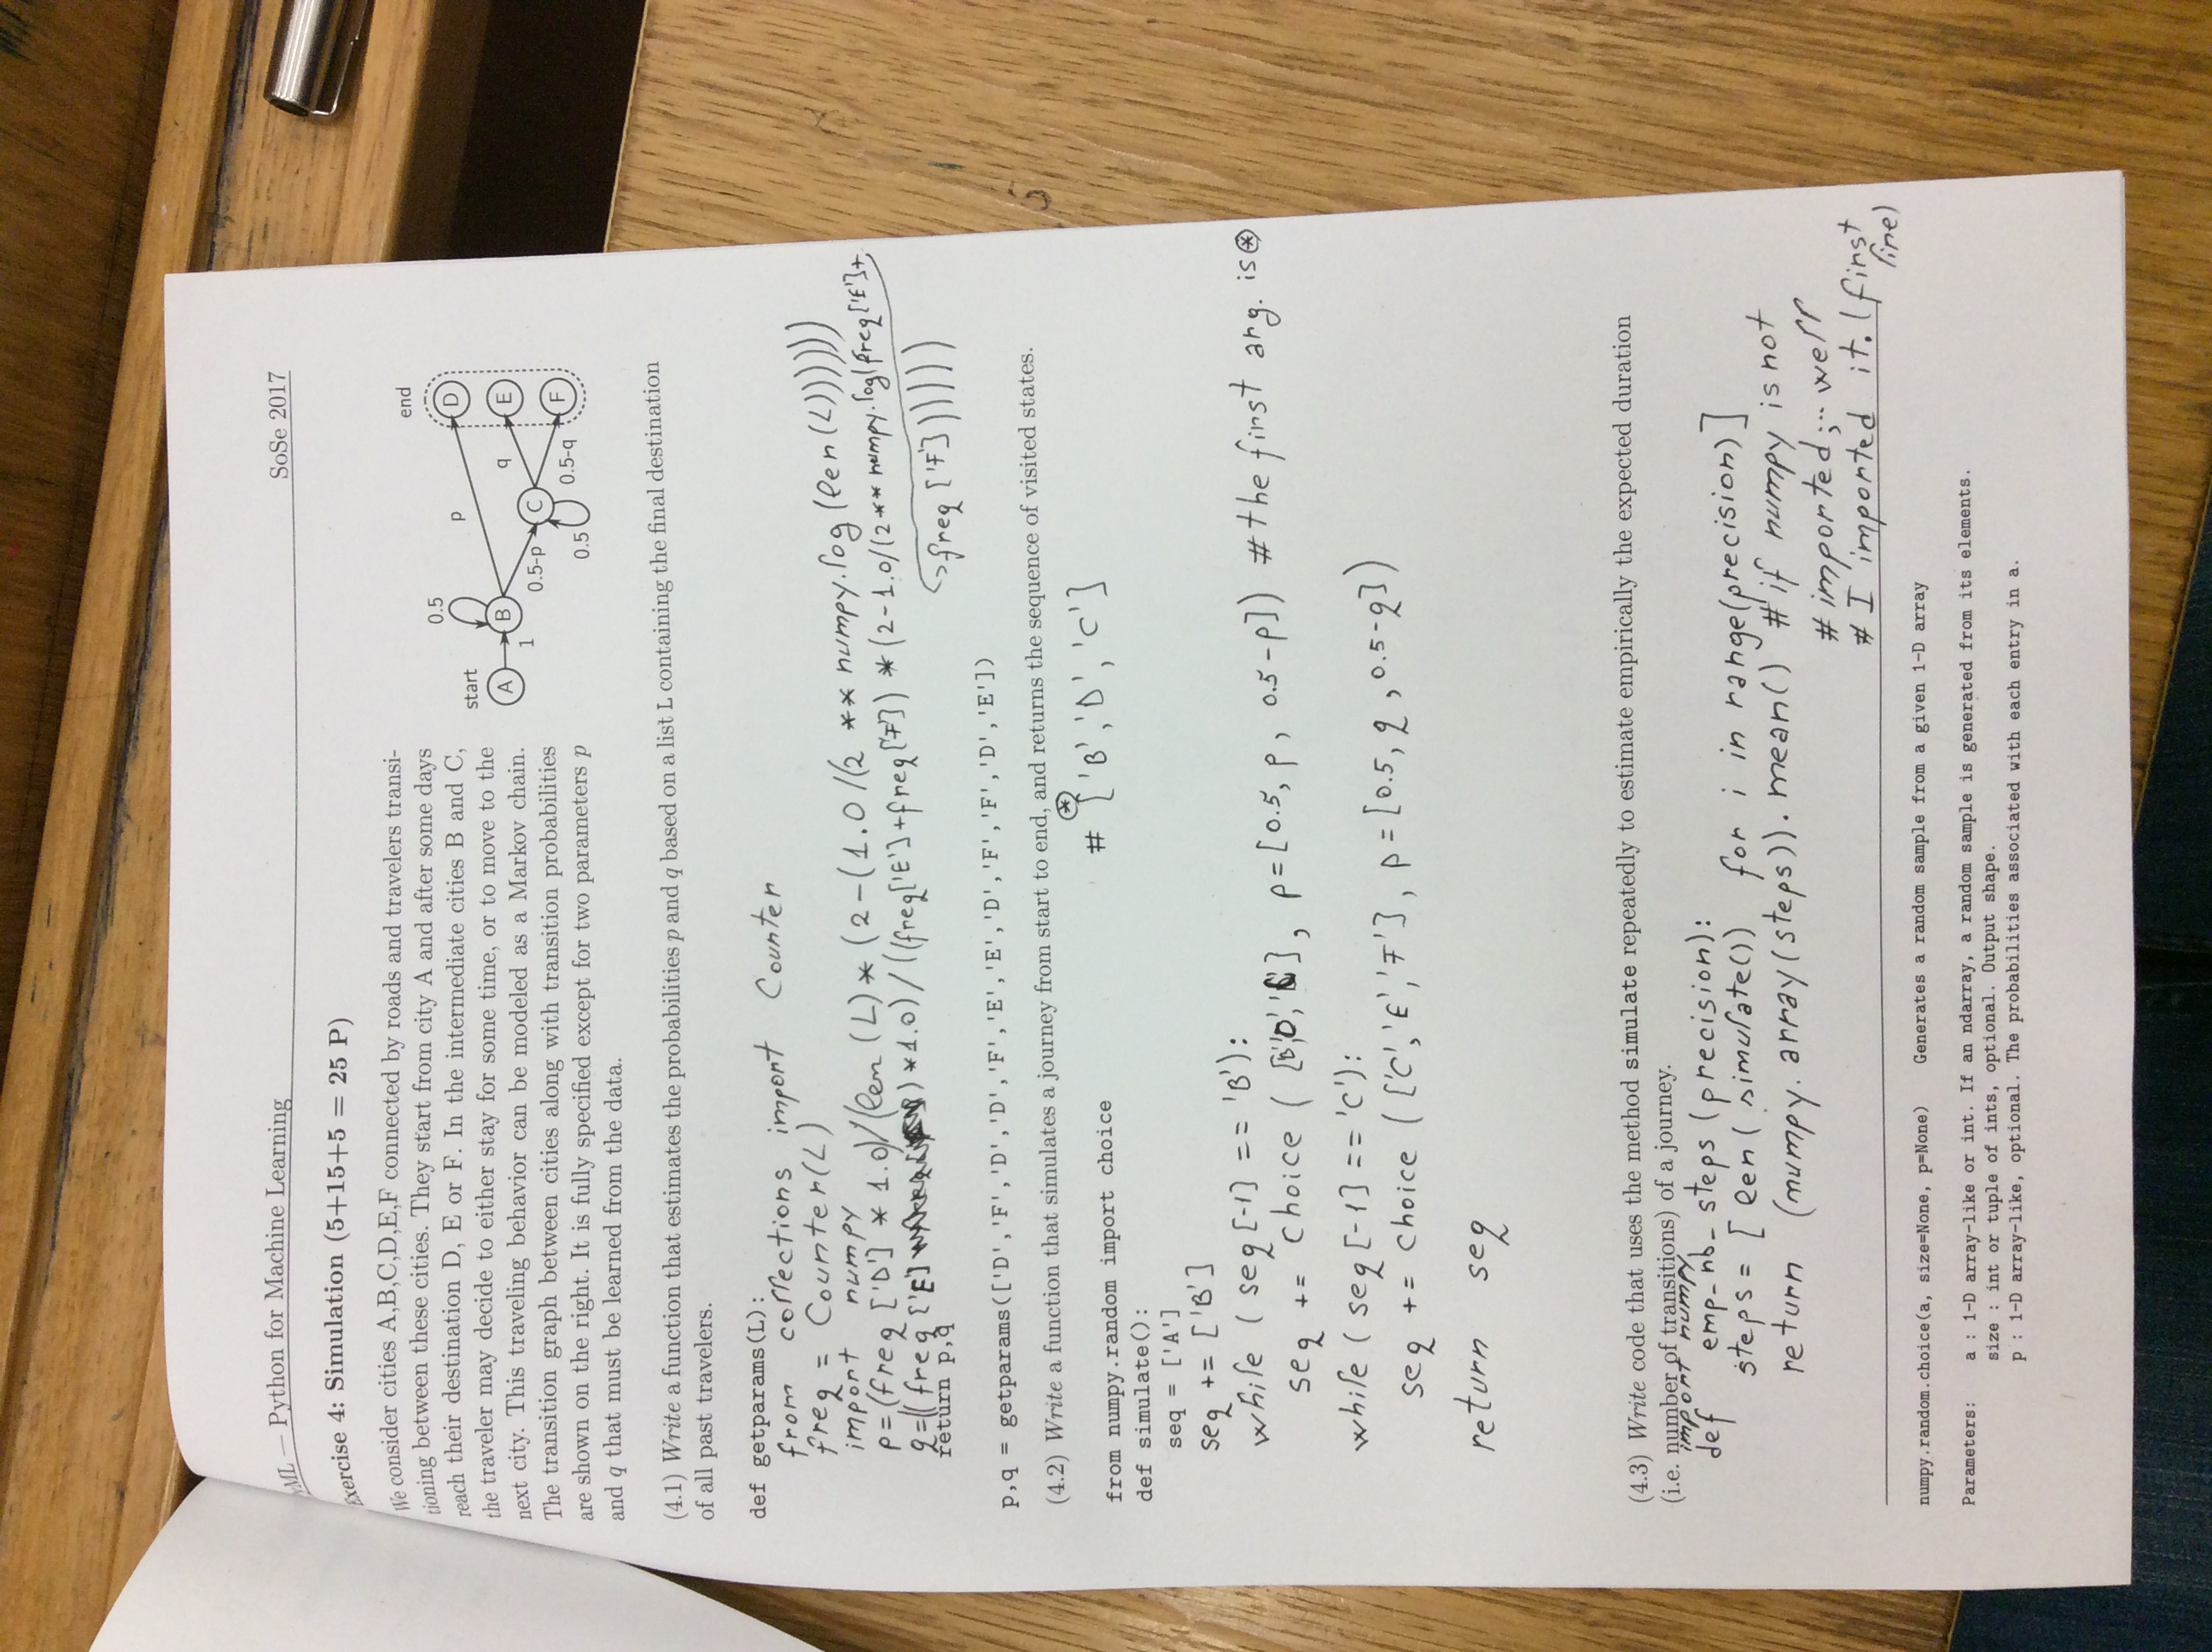 PyML — Python for Machine Learning SoSe 2017
Exercise 4: Simulation (5+15+5 = 25 P)
We consider cities A,B,C,D,E,F connected by roads and travelers transi-
tioning between these cities. They start from city A and after some days
reach their destination D, E or F. In the intermediate cities B and C,
the traveler may decide to either stay for some time, or to move to the
next city. This traveling behavior can be modeled as a Markov chain.
The transition graph between cities along with transition probabilities
are shown on the right. It is fully specified except for two parameters p
and q that must be learned from the data.
end
0.5
p
D
start
A
B
q
E
1
0.5-p
C
0.5
0.5-q
F
(4.1) Write a function that estimates the probabilities p and q based on a list L containing the final destination
of all past travelers.
def getparams(L):
from collections import Counter
freq = Counter(L)
import numpy
p=(freq ['D'] * 1.0)/(len (L) * (2-(1.0/(2 ** numpy.log (len(L))))))
q=((freq ['E'] ) *1.0) / ((freq['E']+freq['F']) * (2-1.0/(2** numpy.log(freq['E']+
freq ['F'])))))
return p,q
p,q = getparams(['D','F','D','D','F','E','E','D','F','F','D','E'])
(4.2) Write a function that simulates a journey from start to end, and returns the sequence of visited states.
# ⊛ ['B','D','C']
from numpy.random import choice
def simulate():
seq = ['A']
seq += ['B']
while (seq[-1] == 'B'):
seq += choice (['B','D','C'], p=[0.5, p, 0.5-p]) # the first arg. is ⊛
while (seq[-1] == 'C'):
seq += choice (['C','E','F'], p=[0.5, q, 0.5-q])
return seq
(4.3) Write code that uses the method simulate repeatedly to estimate empirically the expected duration
(i.e. number of transitions) of a journey.
import numpy
def emp_nb_steps (precision):
steps = [len(simulate()) for i in range(precision)]
return (numpy.array(steps)).mean() # if numpy is not
# imported;... well
# I imported it. (first
line)
numpy.random.choice(a, size=None, p=None) Generates a random sample from a given 1-D array
Parameters: a : 1-D array-like or int. If an ndarray, a random sample is generated from its elements.
size : int or tuple of ints, optional. Output shape.
p : 1-D array-like, optional. The probabilities associated with each entry in a.